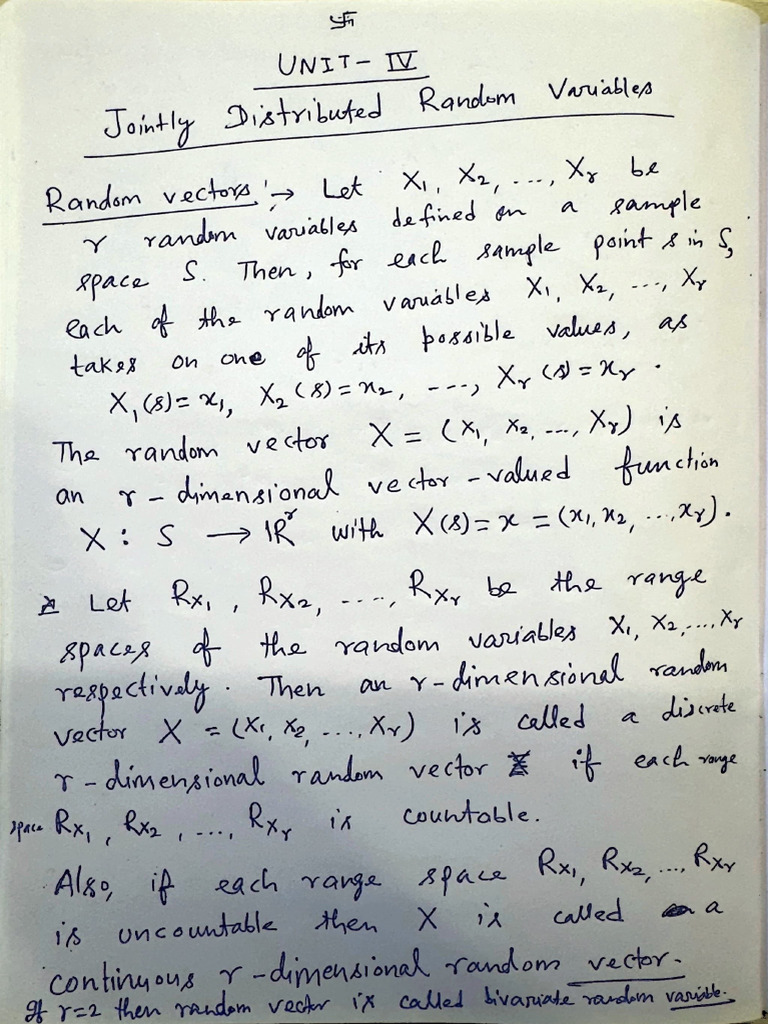 卐
UNIT - IV
Jointly Distributed Random Variables
Random vectors :→ Let X₁, X₂, ..., Xᵣ be
r random variables defined on a sample
space S. Then, for each sample point s in S,
each of the random variables X₁, X₂, ..., Xᵣ
takes on one of its possible values, as
X₁(s) = x₁, X₂(s) = x₂, ---, Xᵣ(s) = xᵣ .
The random vector X = (X₁, X₂, ..., Xᵣ) is
an r - dimensional vector - valued function
X : S → ℝʳ with X(s) = x = (x₁, x₂, ..., xᵣ).
* Let R_X₁, R_X₂, ...., R_Xᵣ be the range
spaces of the random variables X₁, X₂, ..., Xᵣ
respectively. Then an r-dimensional random
vector X = (X₁, X₂, ..., Xᵣ) is called a discrete
r - dimensional random vector if each range
space R_X₁, R_X₂, ..., R_Xᵣ is countable.
Also, if each range space R_X₁, R_X₂, ..., R_Xᵣ
is uncountable then X is called a
continuous r - dimensional random vector.
If r=2 then random vector is called bivariate random variable.